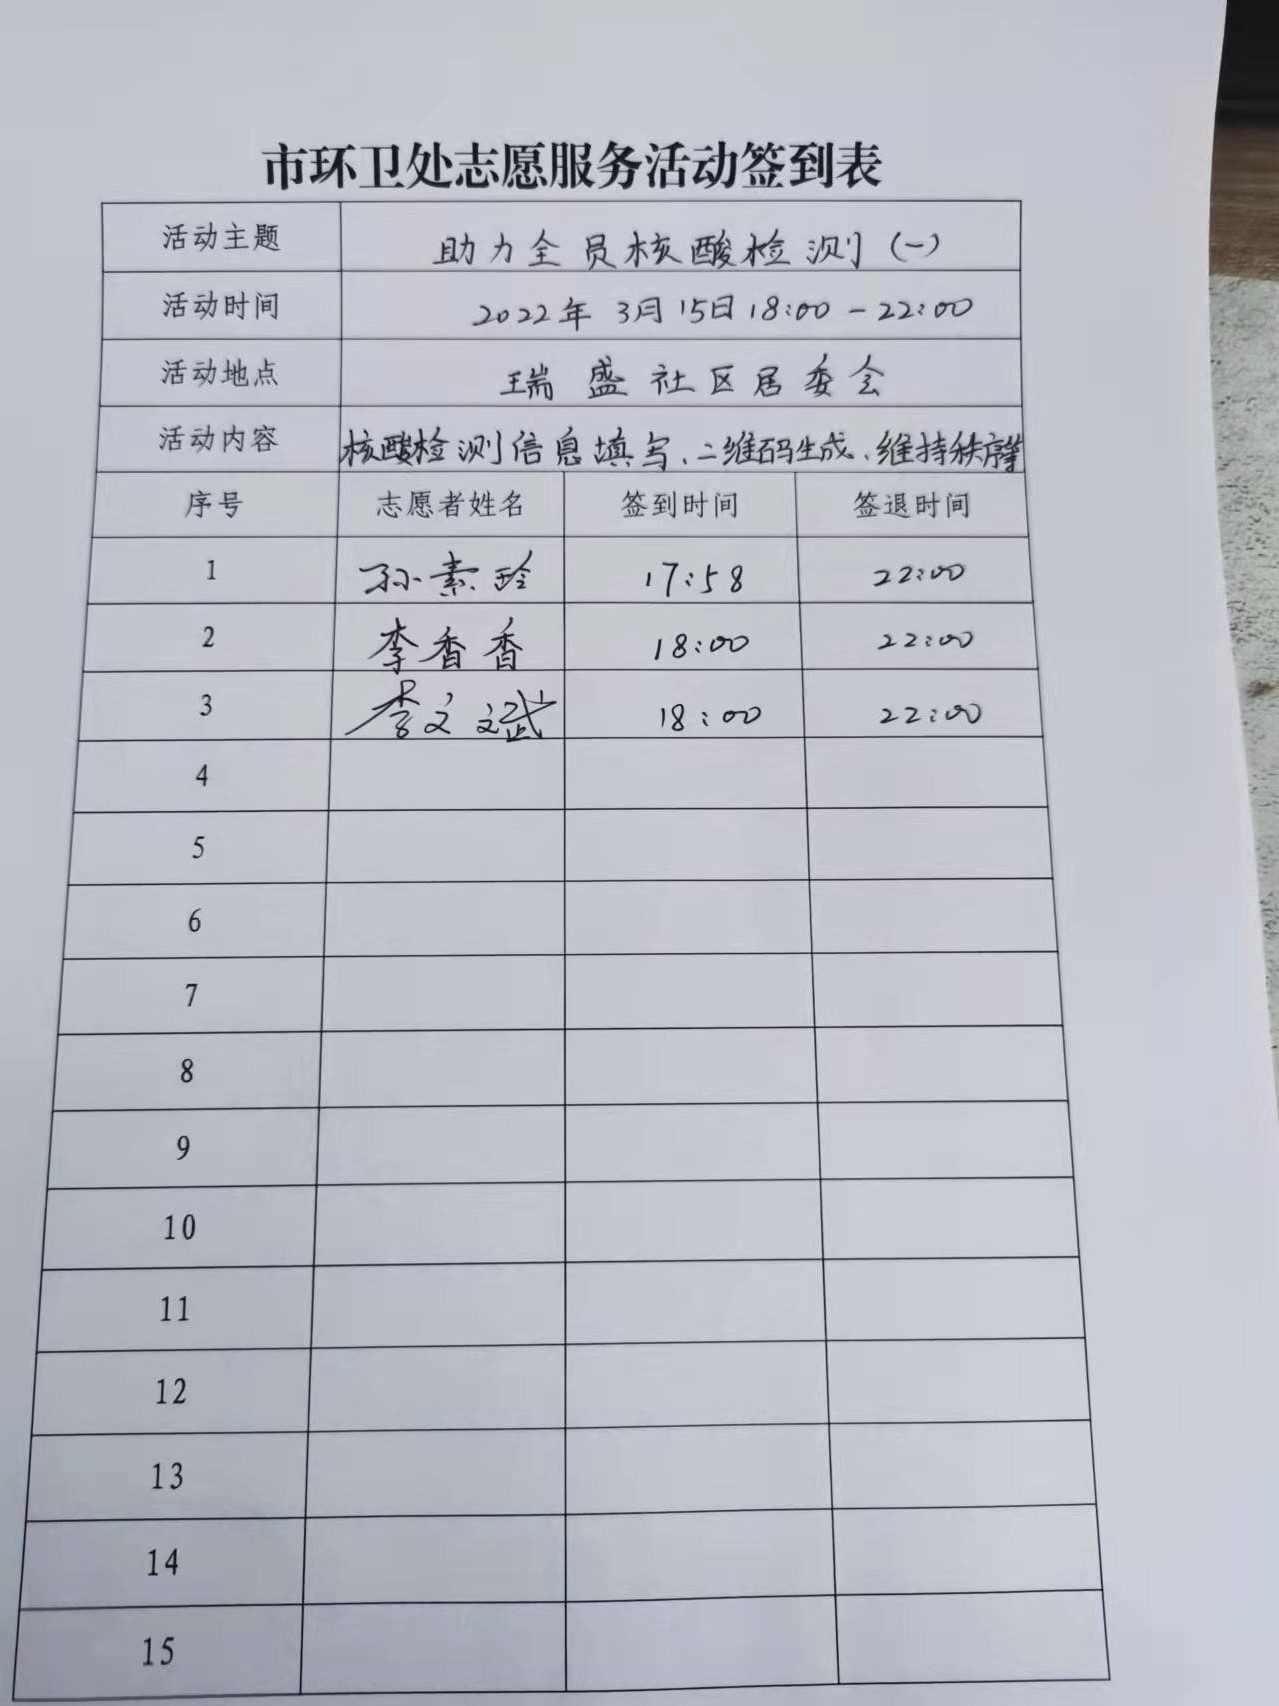 市环卫处志愿服务活动签到表
活动主题 助力全员核酸检测(一)
活动时间 2022年3月15日18:00-22:00
活动地点 瑞盛社区居委会
活动内容 核酸检测信息填写、二维码生成、维持秩序等
序号 志愿者姓名 签到时间 签退时间
1 孙素玲 17:58 22:00
2 李香香 18:00 22:00
3 李文斌 18:00 22:00
4
5
6
7
8
9
10
11
12
13
14
15